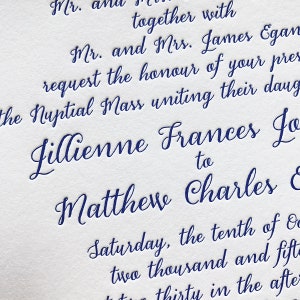 Mr. and
together with
Mr. and Mrs. James Egan
request the honour of your pres
the Nuptial Mass uniting their daug
Jillienne Frances Jo
to
Matthew Charles E
Saturday, the tenth of Oc
two thousand and fift
thirty in the after